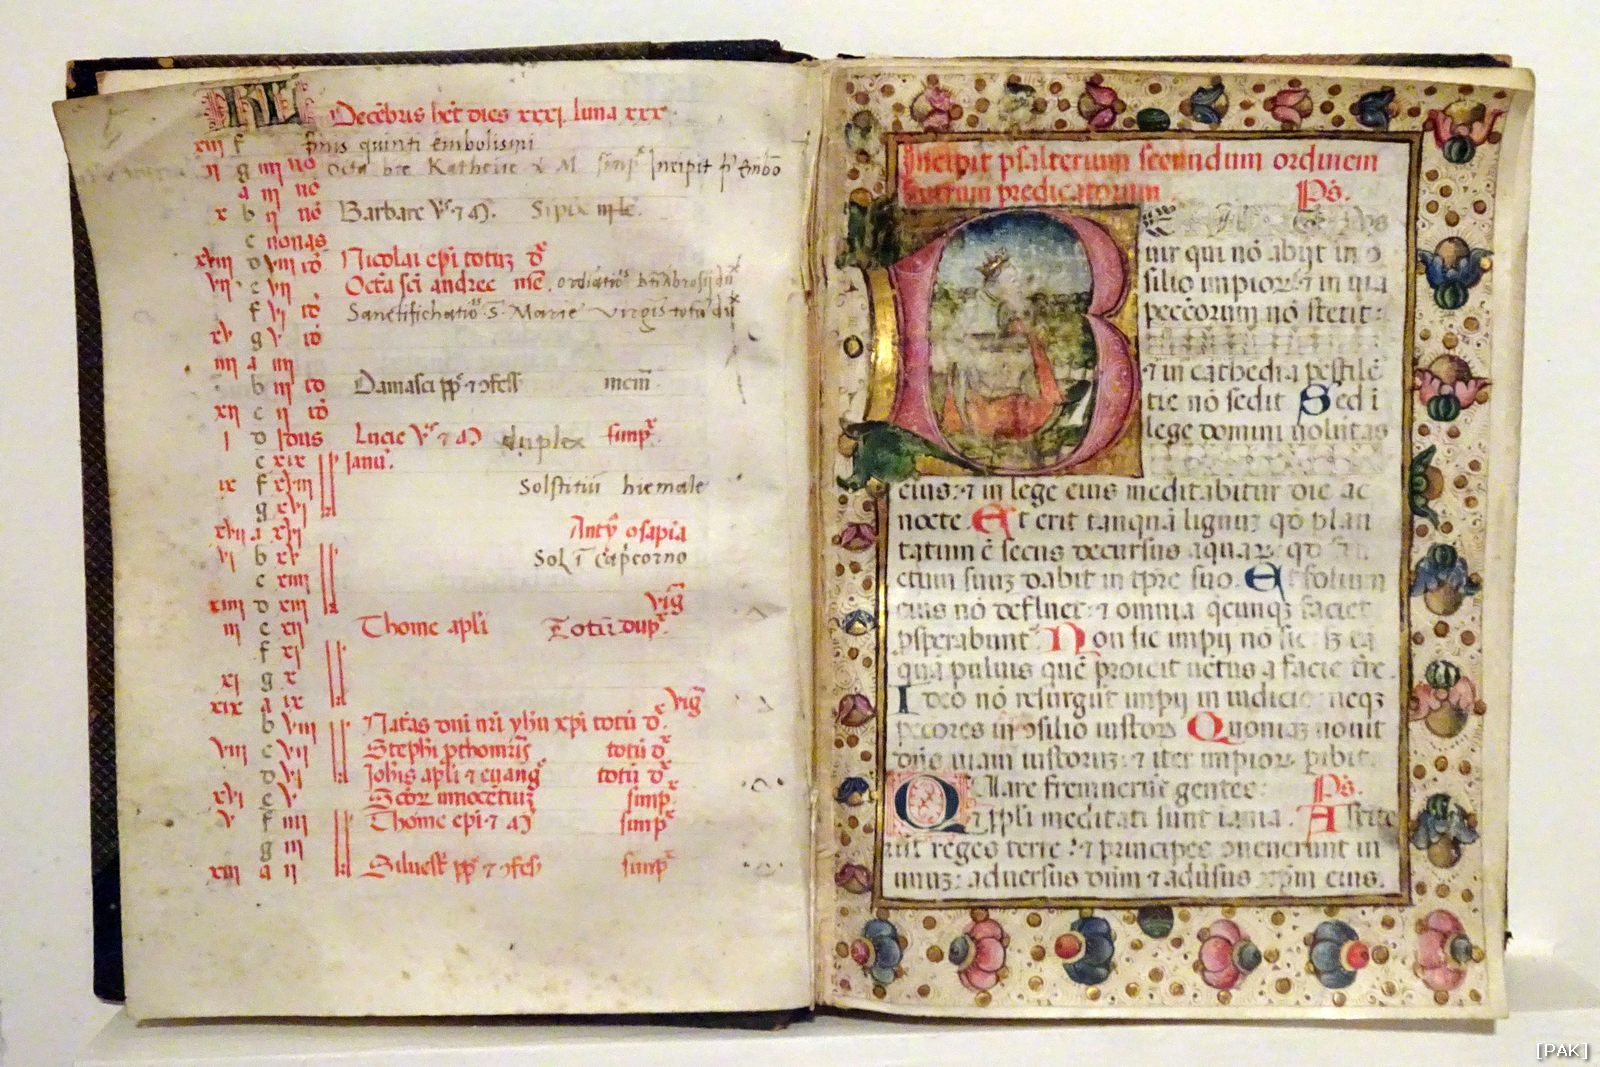 KL Decēbris het dies xxxi luna xxx
xiii f finis quinti embolismi
ii g iiii nō Octa bte Katherīe v̄ & M simp̄ Incipit p' embo
a iii nō
x b ii nō Barbare v̄ ⁊ m̄.
c nonas
xviii d viii id Nicolai epi totuȝ d
vii e vii Octā sci andree ordinatio bti Abrosij du
f vi id Sanctifichatio S. Marie virgīs totū du
xv g v id
iiii a iiii
b iii id Damasci pp ⁊ ɔfess mem̄
xii c ii id
i d Idus Lucie v̄ ⁊ m̄ duplex simp
e xix Ianu.
ix f xviii Solstitiū hiemale
g xvii
xvii a xvi Anty osapia
vi b xv Sol ī Capcorno
c xiiii
xiiii d xiii vig
iii e xii Thome apli Totū dup
f xi
xi g x
xix a ix vig
b viii Natās dni nri yhu xpi totū d
viii c vii Stephi pthomris totū d
d vi Iohis apli ⁊ euang totū d
xvi e v Scor innocētuȝ simp
v f iiii Thome epi ⁊ m̄ simp
g iii
xiii a ii Siluest pp ⁊ ɔfess simp
Incipit psalterium secundum ordinem
fratrum predicatorum Ps.
B
uir qui nō abijt in ɔ
silio impior ⁊ in uia
peccōrum nō stetit:
⁊ in cathedra pestilē
tie nō sedit Sed ī
lege domini uoluntas
eius: ⁊ in lege eius meditabitur die ac
nocte. Et erit tanquā lignuȝ qd plan
tatum ē secus decursus aquar: qd
ctum suuȝ dabit in tpre suo. Et folium
eius nō defluet: ⁊ omnia qcunqȝ faciet
psperabunt Non sic impij nō sic: sȝ tā
quā puluis quē proicit uētus a facie tre
Ideo nō resurgūt impij in iudicio neqȝ
pccores in ɔsilio iustorȝ Quoniaȝ nouit
dns uiam iustoruȝ: ⁊ iter impior pibit.
Quare fremuerūt gentes: Ps.
⁊ ppli meditati sunt inania. Astite
rūt reges terre: ⁊ principes ɔuenerunt in
unuȝ: aduersus dūm ⁊ adūsus xpm eius.
[PAK]